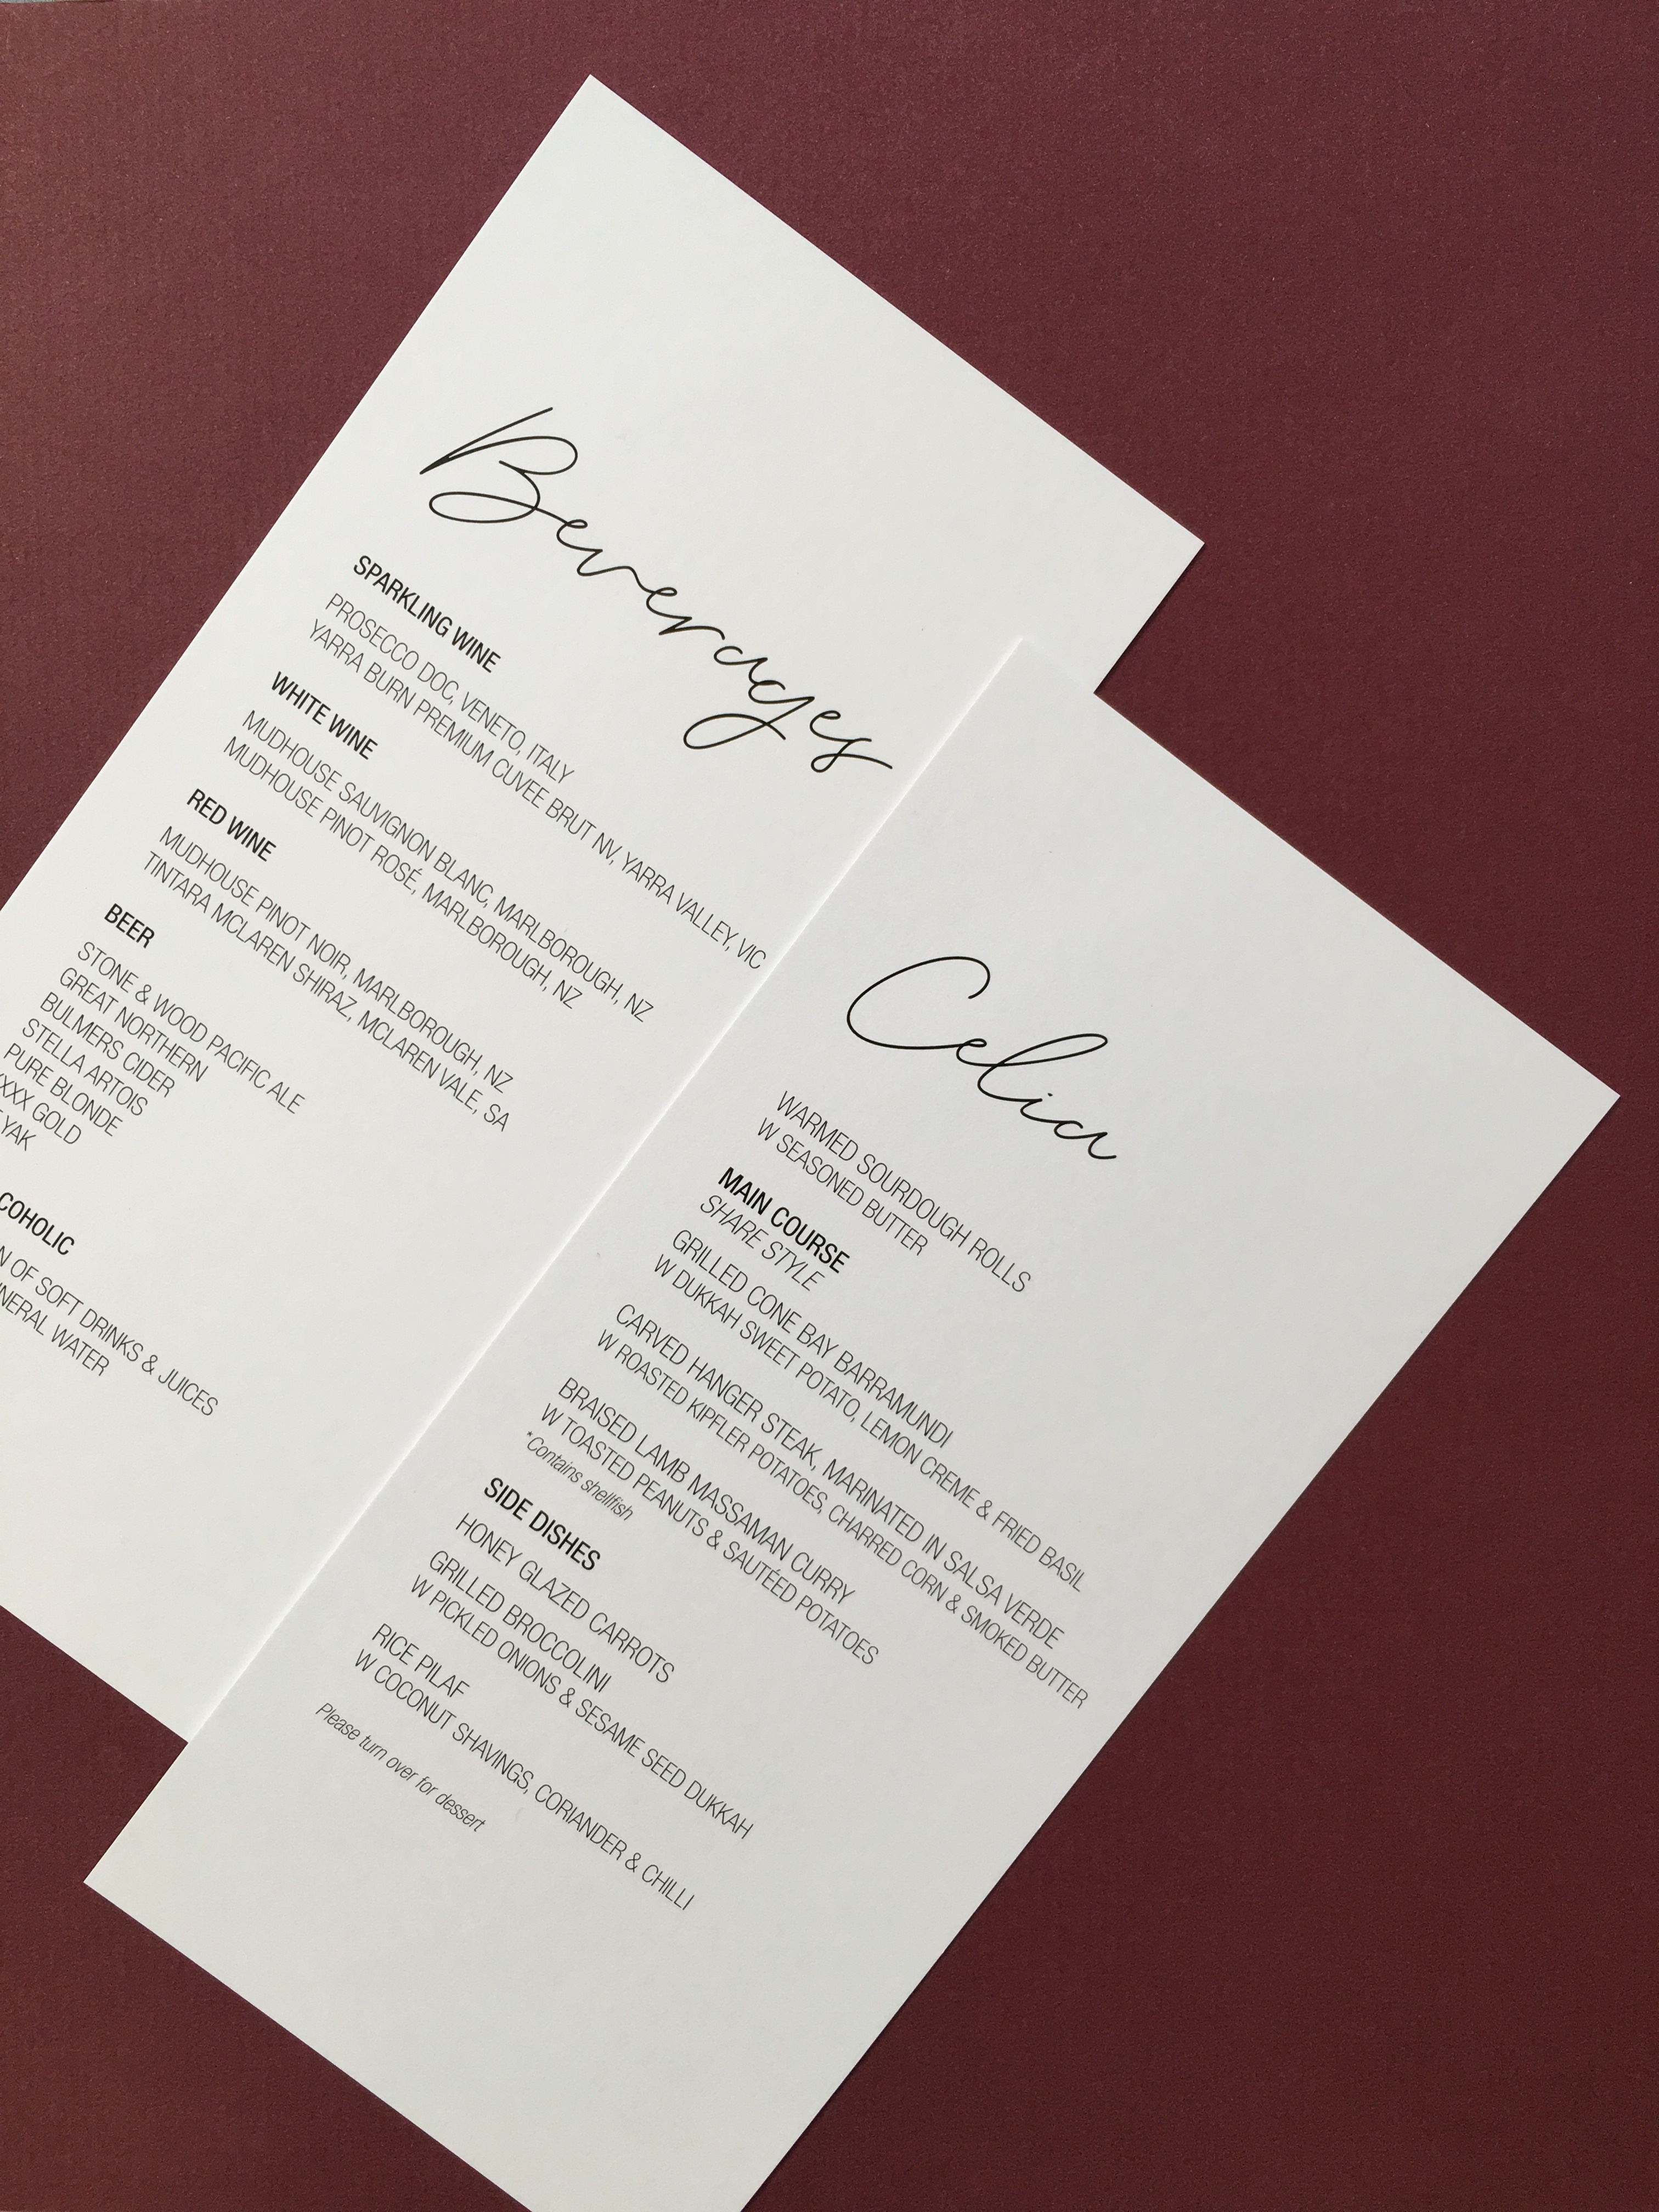 Beverages
SPARKLING WINE
PROSECCO DOC, VENETO, ITALY
YARRA BURN PREMIUM CUVEE BRUT NV, YARRA VALLEY, VIC
WHITE WINE
MUDHOUSE SAUVIGNON BLANC, MARLBOROUGH, NZ
MUDHOUSE PINOT ROSÉ, MARLBOROUGH, NZ
RED WINE
MUDHOUSE PINOT NOIR, MARLBOROUGH, NZ
TINTARA MCLAREN SHIRAZ, MCLAREN VALE, SA
BEER
STONE & WOOD PACIFIC ALE
GREAT NORTHERN
BULMERS CIDER
STELLA ARTOIS
PURE BLONDE
XXX GOLD
YAK
COHOLIC
N OF SOFT DRINKS & JUICES
NERAL WATER
Celia
WARMED SOURDOUGH ROLLS
W SEASONED BUTTER
MAIN COURSE
SHARE STYLE
GRILLED CONE BAY BARRAMUNDI
W DUKKAH SWEET POTATO, LEMON CREME & FRIED BASIL
CARVED HANGER STEAK, MARINATED IN SALSA VERDE
W ROASTED KIPFLER POTATOES, CHARRED CORN & SMOKED BUTTER
BRAISED LAMB MASSAMAN CURRY
W TOASTED PEANUTS & SAUTÉED POTATOES
*Contains shellfish
SIDE DISHES
HONEY GLAZED CARROTS
GRILLED BROCCOLINI
W PICKLED ONIONS & SESAME SEED DUKKAH
RICE PILAF
W COCONUT SHAVINGS, CORIANDER & CHILLI
Please turn over for dessert